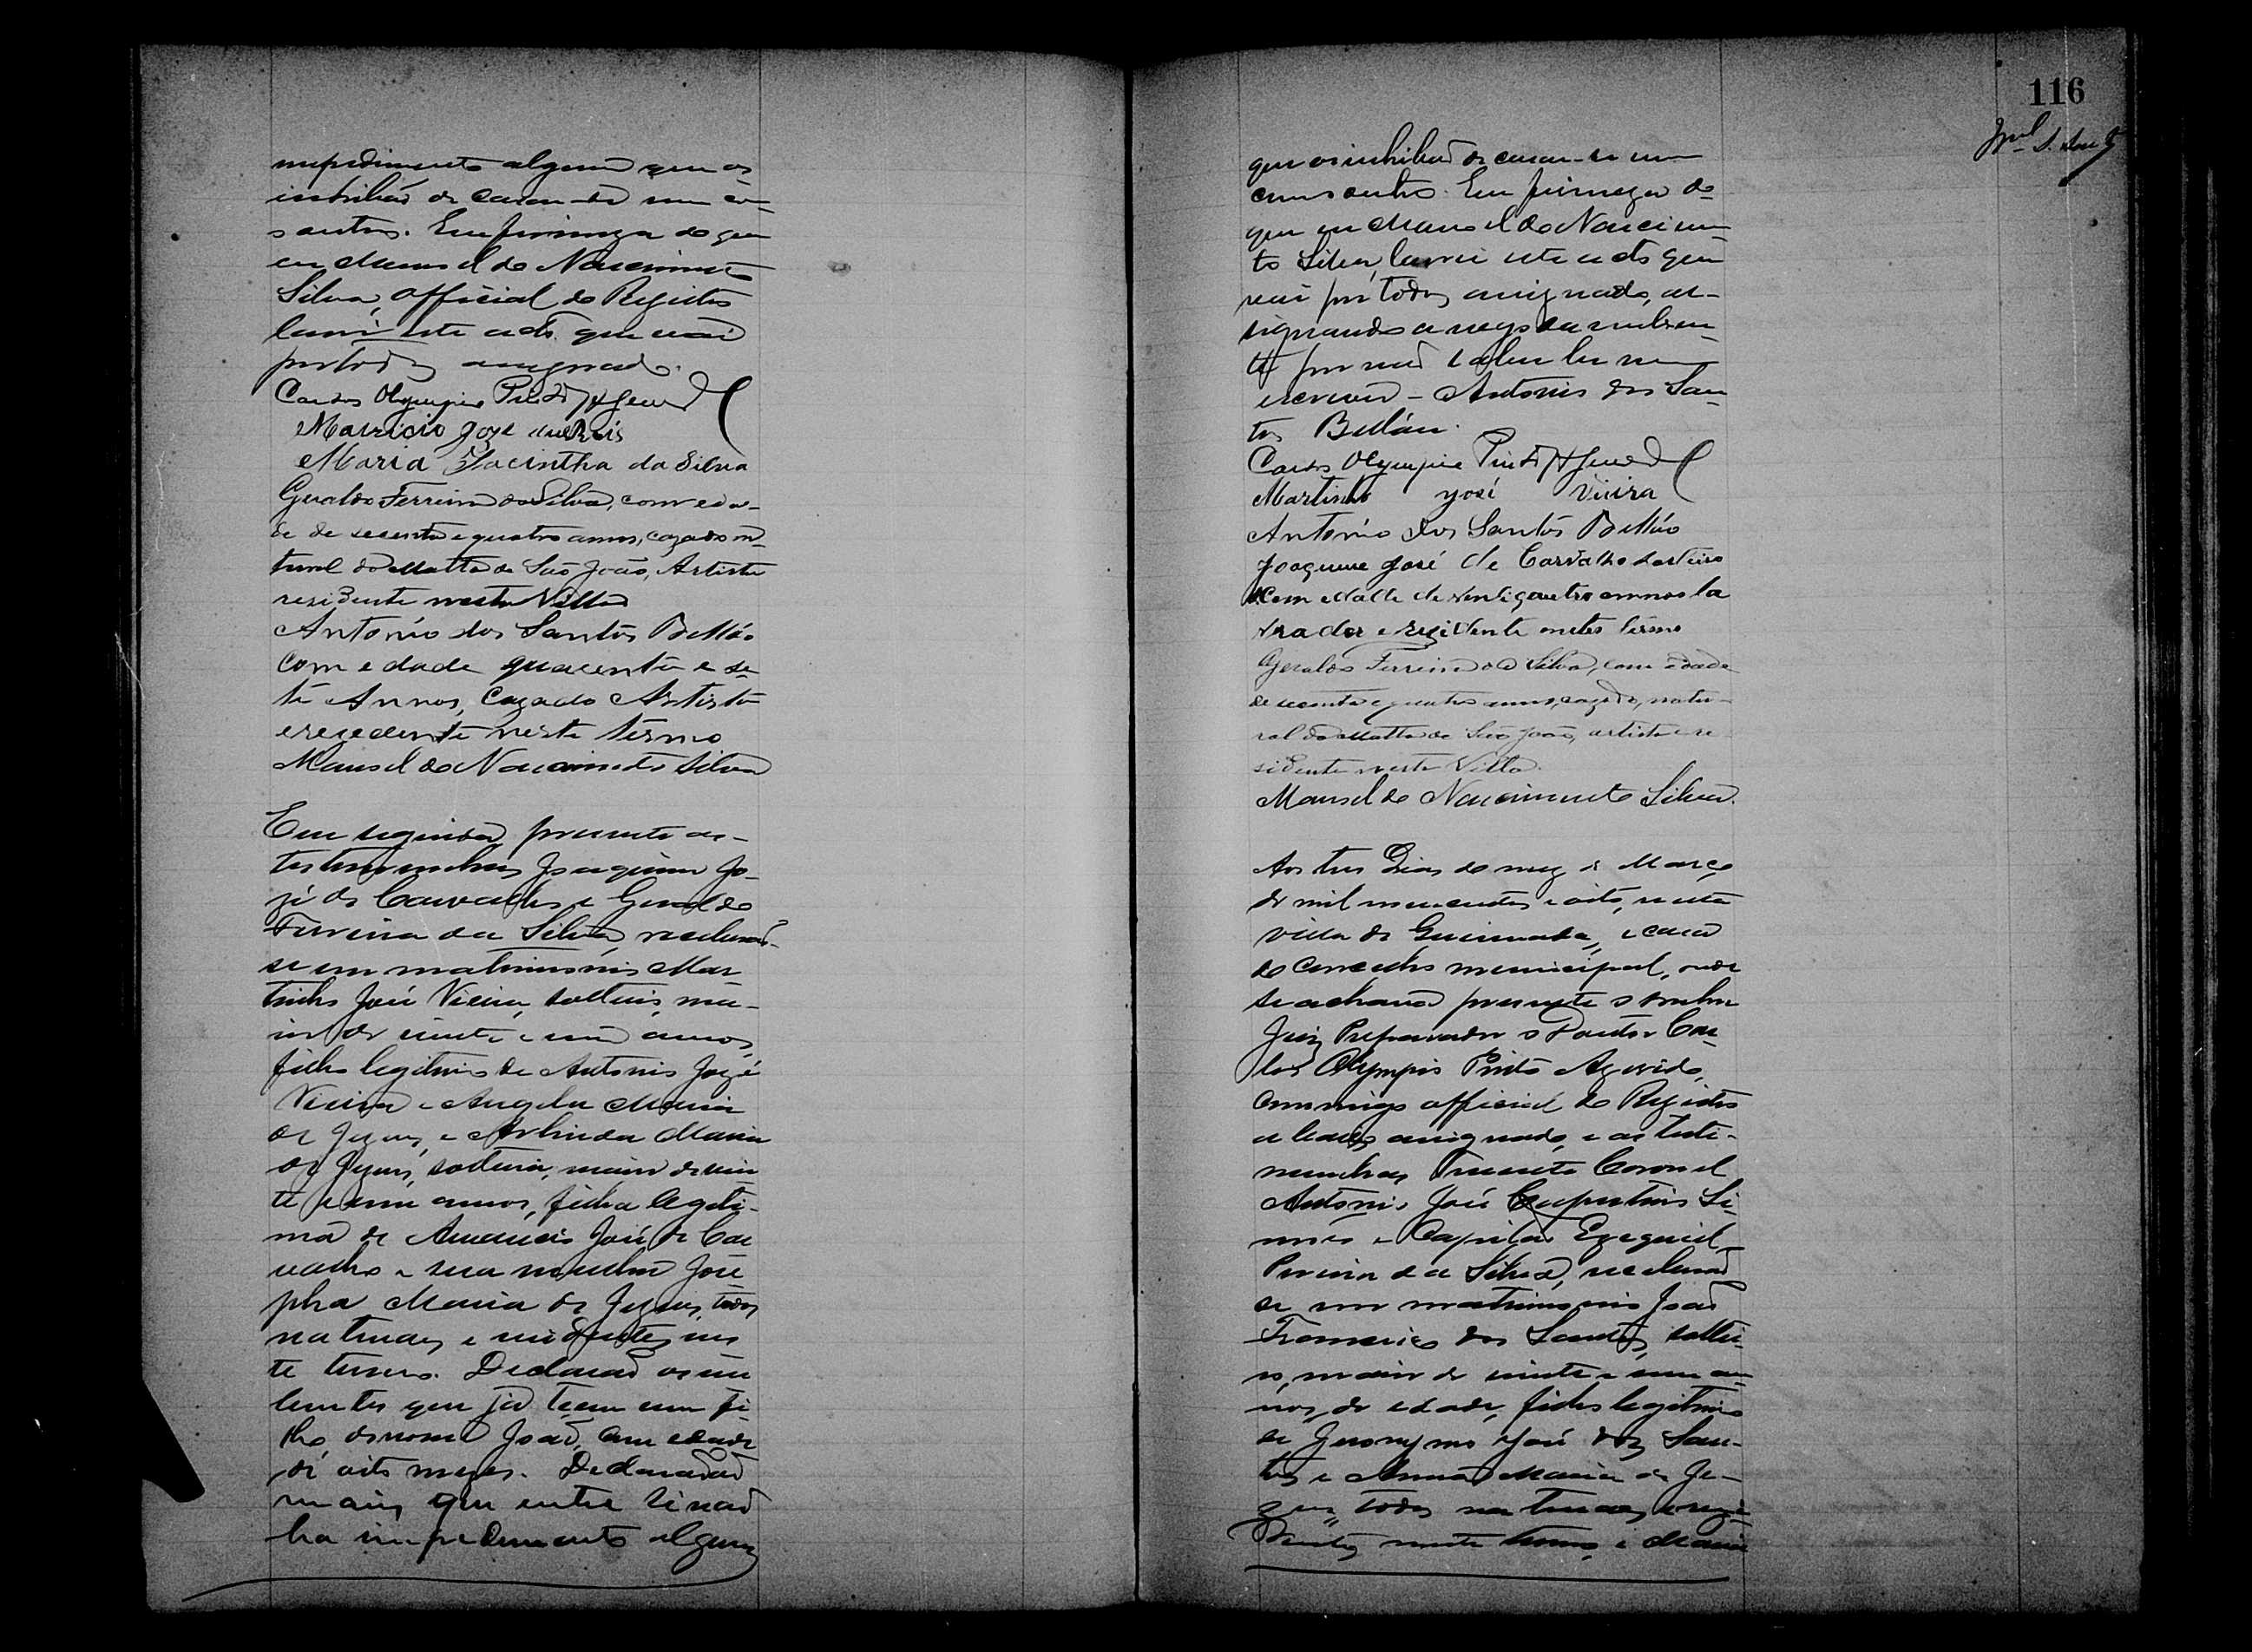 impedimento algum que os
inhibão de casar-se um co-
o outro. Em firmeza do que
eu Manoel do Nascimento
Silva, official do Registro
lavrei este acto que vai
por todos assignado.
Carlos Olympio Pinto Azevedo
Mauricio Joze dos Reis
Maria Jacintha da Silva
Geraldo Ferreira da Silva, com eda-
de de secenta e quatro annos, cazado na-
tural da Matta de São João, Artista
rezidente nesta Villa
Antonio dos Santos Bellão
com edade quarenta e se-
te Annos, Cazado Artista
erecedente neste termo
Manoel do Nascimento Silva
Em seguida presente as
testemunhas Joaquim Jo-
zé de Carvalho e Geraldo
Ferreira da Silva, receberão-
se em matrimonio Mar
tinho José Vieira, solteiro, ma-
ior de vinte e um annos,
filho legitimo de Antonio Jozé
Vieira e Angela Maria
de Jezus, e Arlinda Maria
de Jezus, solteira, maior de vin
te e um annos, filha legiti-
ma de Amancio José de Car
valho e sua mulher José
pha Maria de Jezus, todos
naturaes e residentes nes
te termo. Declarão os nu
bentes que já teem um fi-
lho, de nome João, com edade
de oito mezes. Declararão
mais que entre si não
ha impedimento algum
116
que os inhibão de casar-se um
com o outro. Em firmeza do
que eu Manoel do Nascimen
to Silva, lavrei este acto que
vai por todos assignado, as-
signando a rogo da nuben
te por não saber ler nem
escrever - Antonio dos San
tos Bellão.
Carlos Olympio Pinto Azevedo
Martinho José Vieira
Antonio dos Santos Bellão
Joaquim José de Carvalho solteiro
com edade de vinti quatro annos la
vrador e rezidente nestes termo
Geraldo Ferreira da Silva, com edade
de secenta e quatro annos, cazado, natu-
ral da Matta de São João, artista e re
sidente nesta Villa.
Manoel do Nascimento Silva.
Aos tres Dias do mez de Março
de mil novecentos e oito, nesta
villa de Queimadas, e casa
do Conselho municipal, onde
se achava presente o senhor
Juiz Preparador o Doutor Car
los Olympio Pinto Azevedo,
commigo official do Registro
a baixo assignado, e as teste-
munhas Tenente Coronel
Antonio José Si-
mões e Capitão Ezequiel
Pereira da Silva, receberão
se em matrimonio João
Francisco dos Santos, soltei-
ro, maior de vinte e um an
nos de edade, filho legitimo
de Jeronymo José dos San-
tos e Anna Maria de Je-
zus, todos naturaes e rezi-
dentes neste termo, e Maria